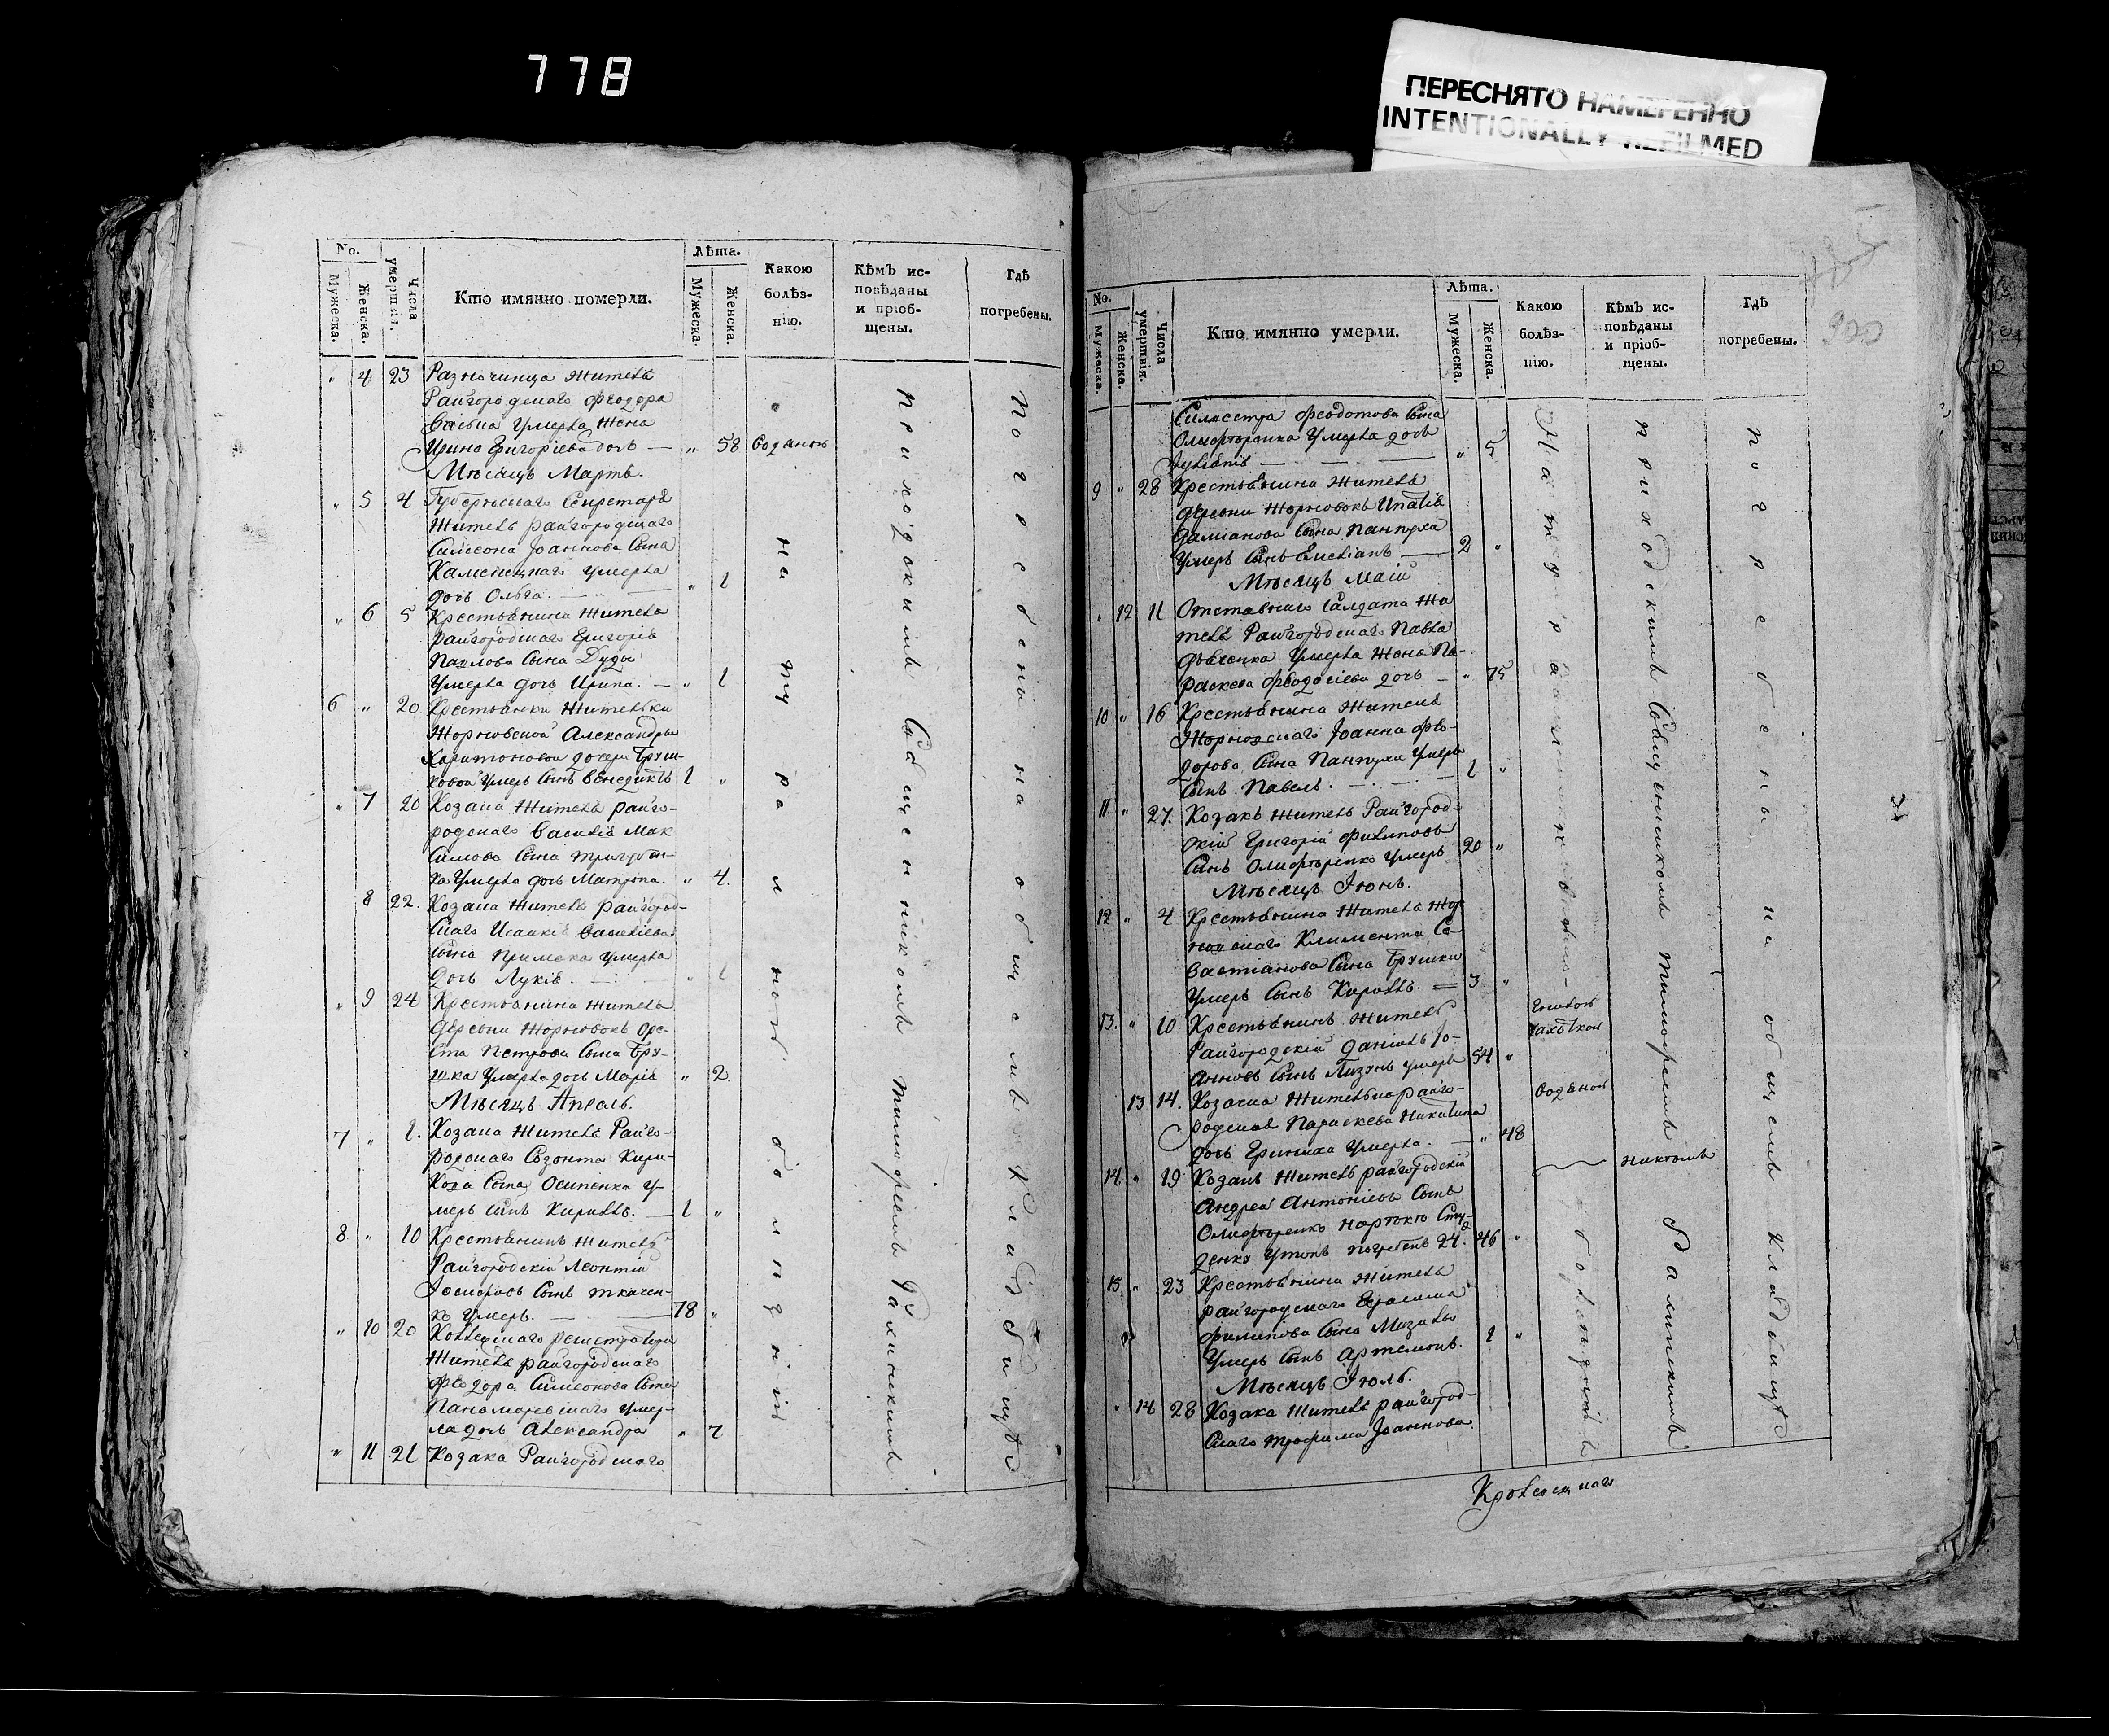 778
ПЕРЕСНЯТО НАМЕРЕННО
INTENTIONALLY REFILMED
No.
Мужеска.
Женска.
Числа умертвія.
Кто имянно померли.
Лѣта.
Мужеска.
Женска.
Какою болѣз-
нію.
Кѣмъ ис-
повѣданы
и пріоб-
щены.
Гдѣ
погребены.
" 4 23 Разночинца жителя
Райгородскаго Феодора
умерла жена
Ирина Григоріева дочь — " 58 водяною
Мѣсяцъ Мартъ.
" 5 4 Губернскаго Секретаря
жителя райгородскаго
Симеона Іоаннова сына
Каменецкаго умерла
дочь Ольга. — " 1
" 6 5 Крестьянина жителя
райгородскаго Григорія
Павлова сына Дуды
умерла дочь Ирина. — " 1
6 " 20 Крестьянки жительки
Жорновской Александры
Харитоновой дочери Бруш-
ковой умеръ сынъ Венедиктъ 1 "
" 7 20 Козака жителя райго-
родскаго Василія Мак
симова сына
умерла дочь Матрона. " 4.
8 22. Козака жителя райгород-
скаго Исаакія Василіева
сына Примака умерла
дочь Лукія. — " 1
" 9 24 Крестьянина жителя
деревни Жорновокъ Оре-
ста Петрова сына Бру-
шка умерла дочь Марія " 2.
Мѣсяцъ Апрель.
7 " 1. Козака жителя Райго-
родскаго Созонта Кири-
сына Осипенка у-
меръ сынъ Кириллъ. — 1 "
8 " 10 Крестьянинъ житель
Райгородскій Леонтій
Іосифовъ сынъ Ткачен-
ко умеръ. — 78 "
" 10 20 Коллежскаго регистратора
жителя райгородскаго
Феодора Симеонова сына
Панаморевскаго умер-
ла дочь Александра " 7
" 11 21 Козака Райгородскаго
натуральною болѣзнію
приходскимъ священникомъ Тимофеемъ
погребены на общемъ кладбищѣ
No.
Мужеска.
Женска.
Числа умертвія.
Кто имянно умерли.
Лѣта.
Мужеска.
Женска.
Какою
болѣз-
нію.
Кѣмъ ис-
повѣданы
и пріоб-
щены.
Гдѣ
погребены.
Силвестра Феодотова сына
Олифъренка умерла дочь
— " 5
9 " 28 Крестьянина жителя
деревни Жорновокъ Ипатія
Даміанова сына Панпуха
умеръ сынъ Емеліанъ — 2 "
Мѣсяцъ Маій
" 12 11 Отставнаго салдата жи
теля Райгородскаго Павла
умерла жена Па-
раскева Феодосіева дочь — " 75
10 " 16 Крестьянина жителя
Жорновскаго Іоанна Фео-
дорова сына Панпухи умеръ
сынъ Павелъ. — 1 "
11 " 27. Козакъ житель Райгород-
скій Григорій Филиповъ
сынъ Олифъренко умеръ 20 "
Мѣсяцъ Іюнь.
12 " 4 Крестьянина жителя Жор
новскаго Климента Се
вастіанова сына Брушки
умеръ сынъ Кириллъ. — 3 "
13. " 10 Крестьянинъ житель
Райгородскій Даніилъ Іо-
анновъ сынъ умеръ 54 "
13 14. Козачка жителька райго-
родская Параскева Никитина
дочь умерла. — " 48 водяною
14. " 19 Козакъ житель райгородскій
Андрей Антоніевъ сынъ
Олифъренко
утопъ погребенъ 24. 46 " никтомъ
15. " 23 Крестьянина жителя
райгородскаго Герасима
Филипова сына
умеръ сынъ Артемонъ. 1 "
Мѣсяцъ Іюль.
" 14 28 Козака жителя райгород-
скаго Трофима Іоаннова
приходскимъ священникомъ Тимофеемъ
погребены на общемъ кладбищѣ